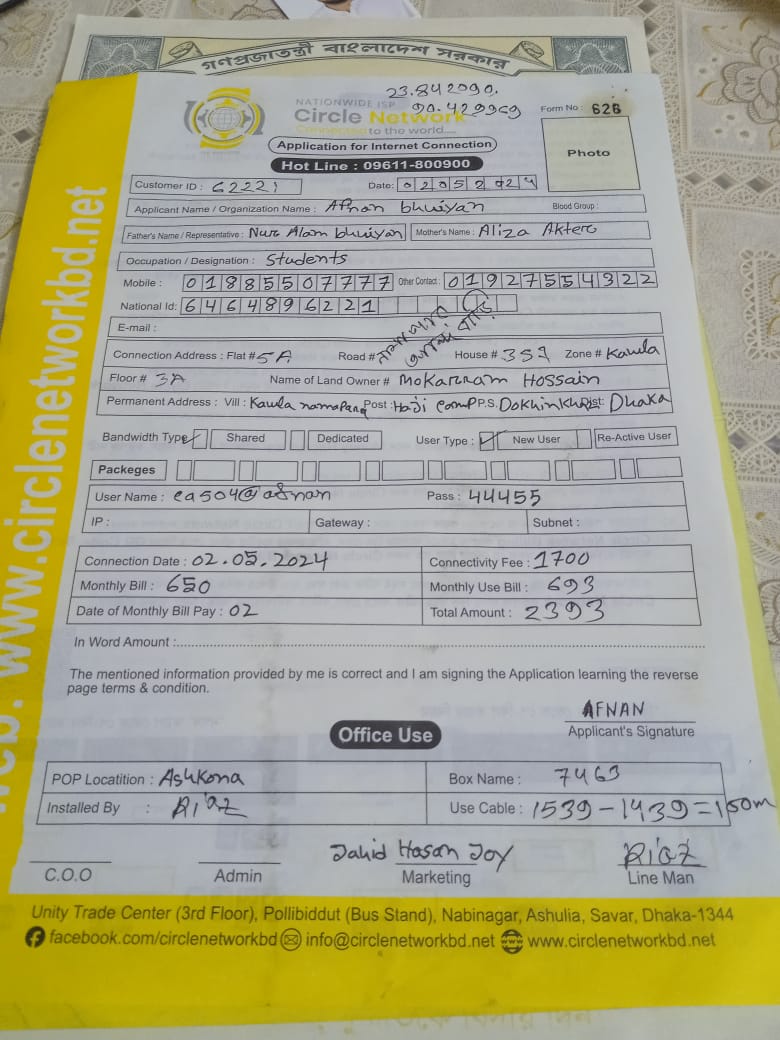 গণপ্রজাতন্ত্রী বাংলাদেশ সরকার
23.842090.
90.429969
NATIONWIDE ISP
Circle Network
Connected to the world....
Form No : 626
Application for Internet Connection
Hot Line : 09611-800900
Photo
Customer ID : 62221 Date: 02052024
Applicant Name / Organization Name : Afnan bhuiyan Blood Group :
Father's Name / Representative : Nur Alam bhuiyan Mother's Name : Aliza Akter
Occupation / Designation : Students
Mobile : 01885507777 Other Contact : 01927554322
National Id: 6464896221
E-mail :
Connection Address : Flat # 5A Road # House # 351 Zone # Kawla
Floor # 3A Name of Land Owner # Mokarram Hossain
Permanent Address : Vill : Kawla namapara Post : Haji Camp P.S. Dokhinkhan Dist: Dhaka
Bandwidth Type Shared Dedicated User Type : New User Re-Active User
Packeges
User Name : ca504@afnan Pass : 44455
IP : Gateway : Subnet :
Connection Date : 02.05.2024 Connectivity Fee : 1700
Monthly Bill : 650 Monthly Use Bill : 693
Date of Monthly Bill Pay : 02 Total Amount : 2393
In Word Amount :
The mentioned information provided by me is correct and I am signing the Application learning the reverse
page terms & condition.
AFNAN
Applicant's Signature
Office Use
POP Locatition : Ashkona Box Name : 7463
Installed By : Riaz Use Cable : 1539-1439=150m
Jahid Hasan Joy Riaz
C.O.O Admin Marketing Line Man
Unity Trade Center (3rd Floor), Pollibiddut (Bus Stand), Nabinagar, Ashulia, Savar, Dhaka-1344
facebook.com/circlenetworkbd info@circlenetworkbd.net www.circlenetworkbd.net
web: www.circlenetworkbd.net